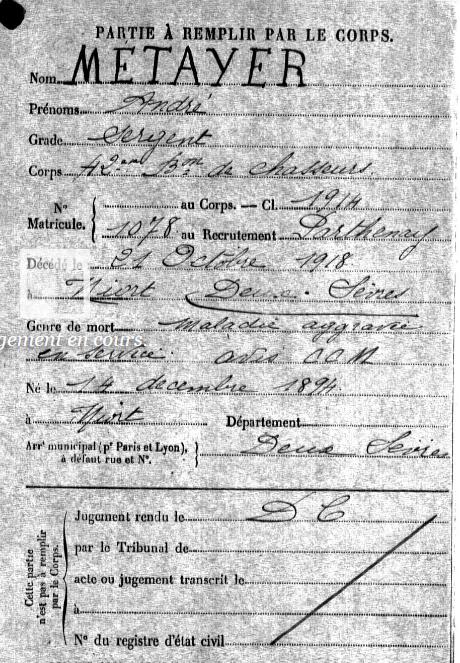 PARTIE À REMPLIR PAR LE CORPS.
Nom METAYER
Prénoms André
Grade Sergent
Corps 42ème Bon de Chasseurs
No Matricule. { au Corps. — Cl. 1914
1078 au Recrutement Parthenay
Décédé le 31 Octobre 1918
à Niort Deux-Sèvres
Genre de mort Maladie aggravée
gement en cours.
en service. avis CCM
Né le 14 décembre 1894
à Niort Département
Arrt municipal (pr Paris et Lyon), à défaut rue et No. } Deux Sèvres
Cette partie n'est pas à remplir par le Corps.
Jugement rendu le D C
par le Tribunal de
acte ou jugement transcrit le
à
No du registre d'état civil